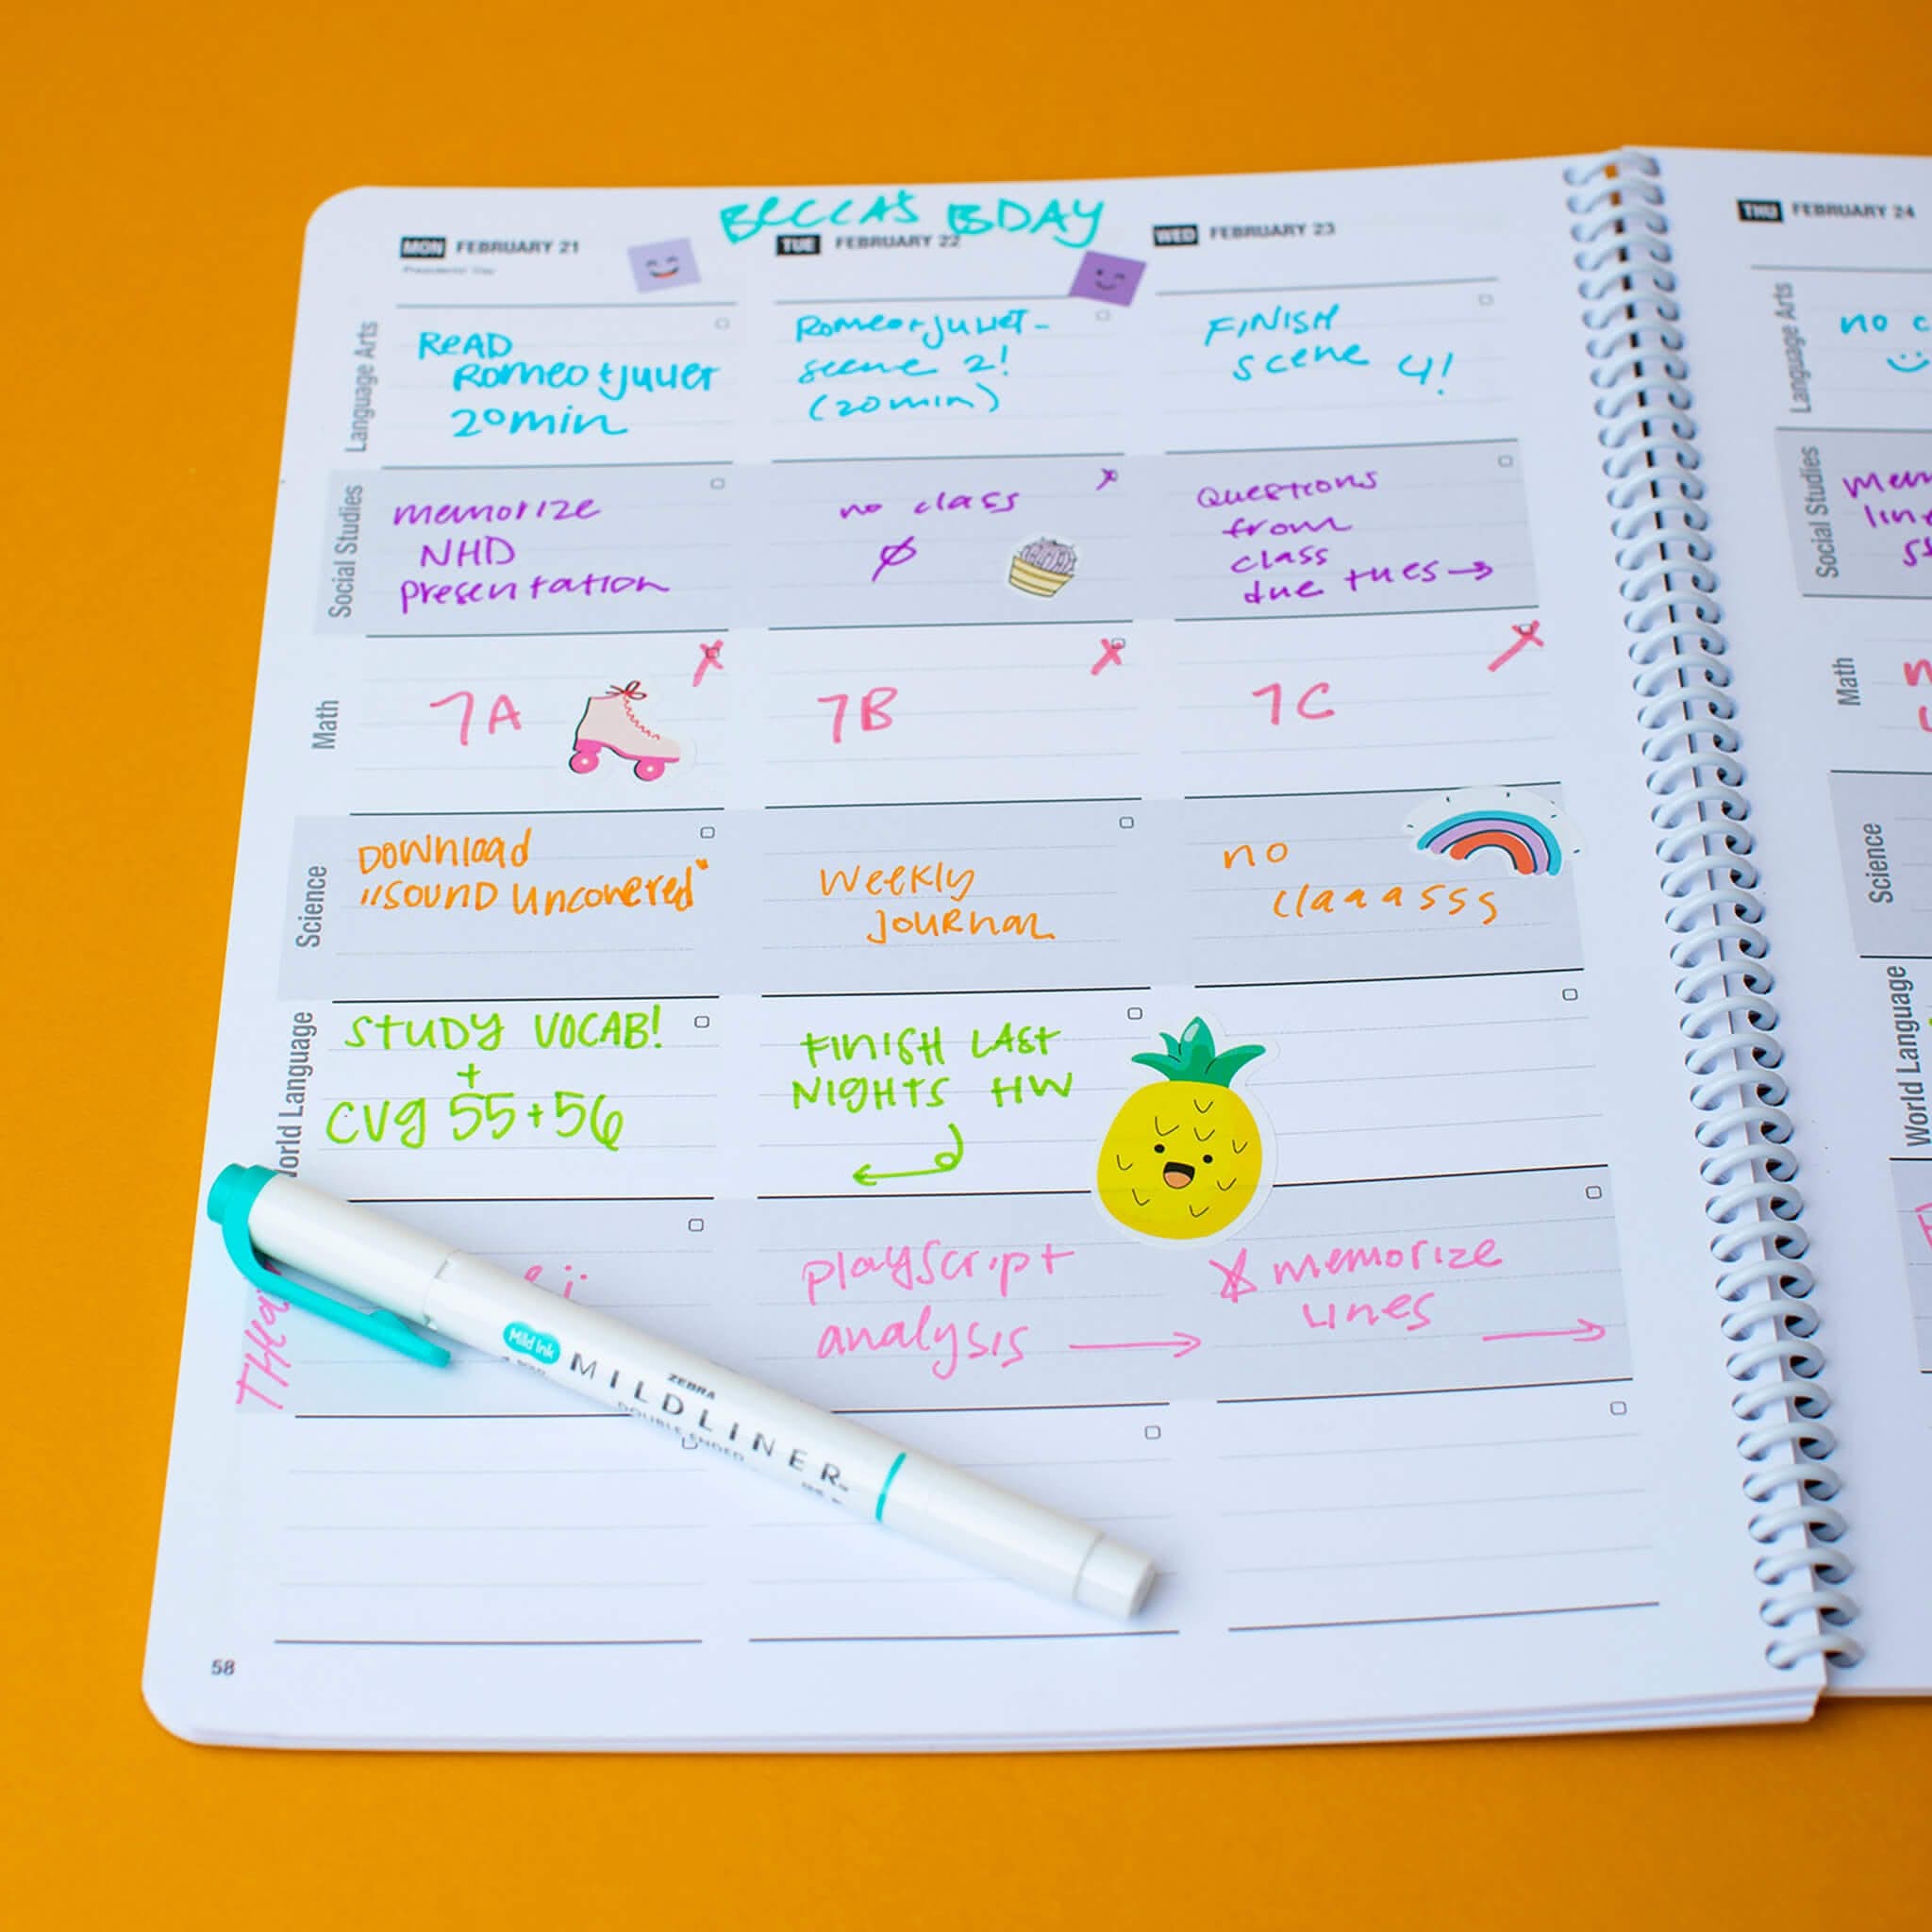 BECCA'S BDAY
MON FEBRUARY 21
Presidents' Day
TUE FEBRUARY 22
WED FEBRUARY 23
THU FEBRUARY 24
Language Arts
READ
Romeo + Juliet
20min
Romeo + Juliet -
scene 2!
(20min)
FINISH
scene 4!
Language Arts
no
Social Studies
memorize
NHD
presentation
no class
Questions
from
class
due tues →
Social Studies
Math
7A
7B
7C
Math
Science
DOWNLOAD
"SOUND UNCOVERED"
WEEKLY
JOURNAL
no
claaasss
Science
World Language
STUDY VOCAB!
+
CVg 55+56
FINISH LAST
NIGHTS HW
World Language
playscript
analysis →
memorize
lines →
Mild Ink
ZEBRA
MILDLINER
DOUBLE ENDED
58